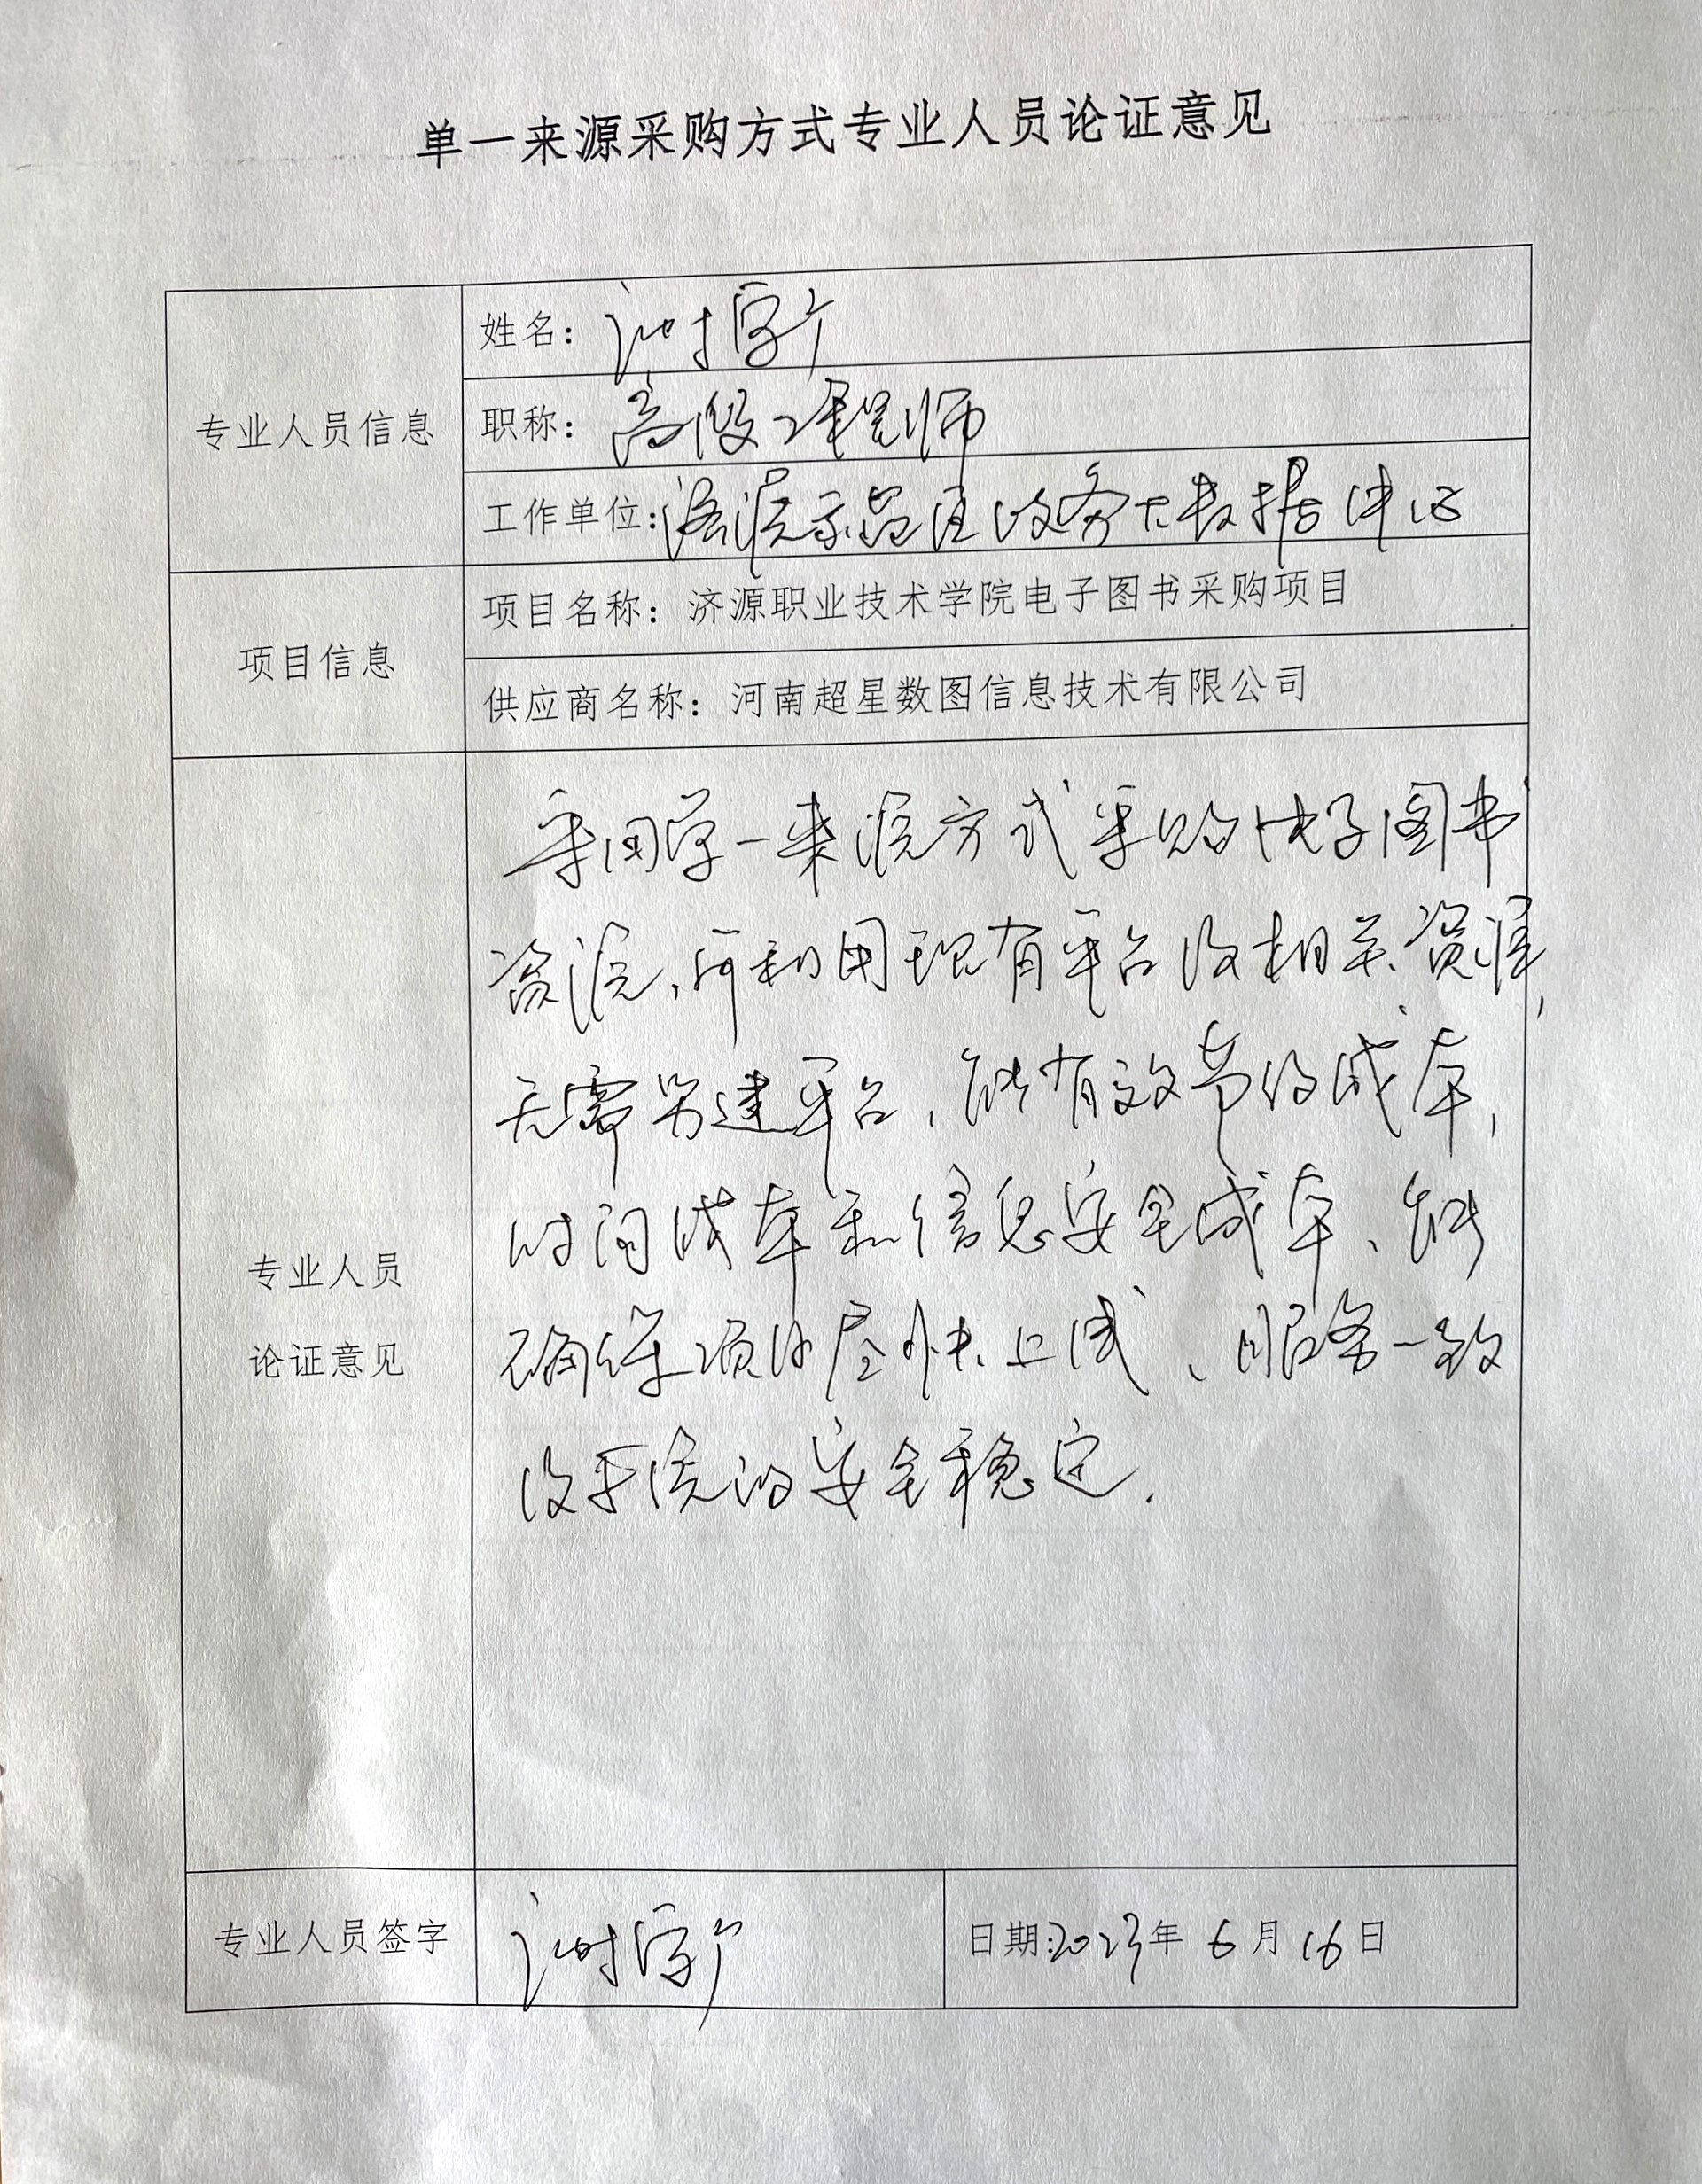 单一来源采购方式专业人员论证意见
专业人员信息
姓名：谢
职称：高级工程师
工作单位：济源示范区政务大数据中心
项目信息
项目名称：济源职业技术学院电子图书采购项目
供应商名称：河南超星数图信息技术有限公司
专业人员
论证意见
采用单一来源方式采购电子图书
资源，可利用现有平台及相关资源，
无需另建平台，能有效节约成本，
时间成本和信息安全成本，能
确保项目尽快上线、服务一致
及系统的安全稳定.
专业人员签字
谢
日期:2023年6月16日